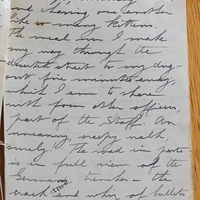 and chasing one another
like so many kittens.
The meal over I make
my way through the
deserted street to my dug-
out five minutes away,
which I am to share
with four other officers
part of the Staff. An
uncanny, creepy walk
surely! The road in parts
is in full view of the
German trenches – the
crack and whizz of bullets